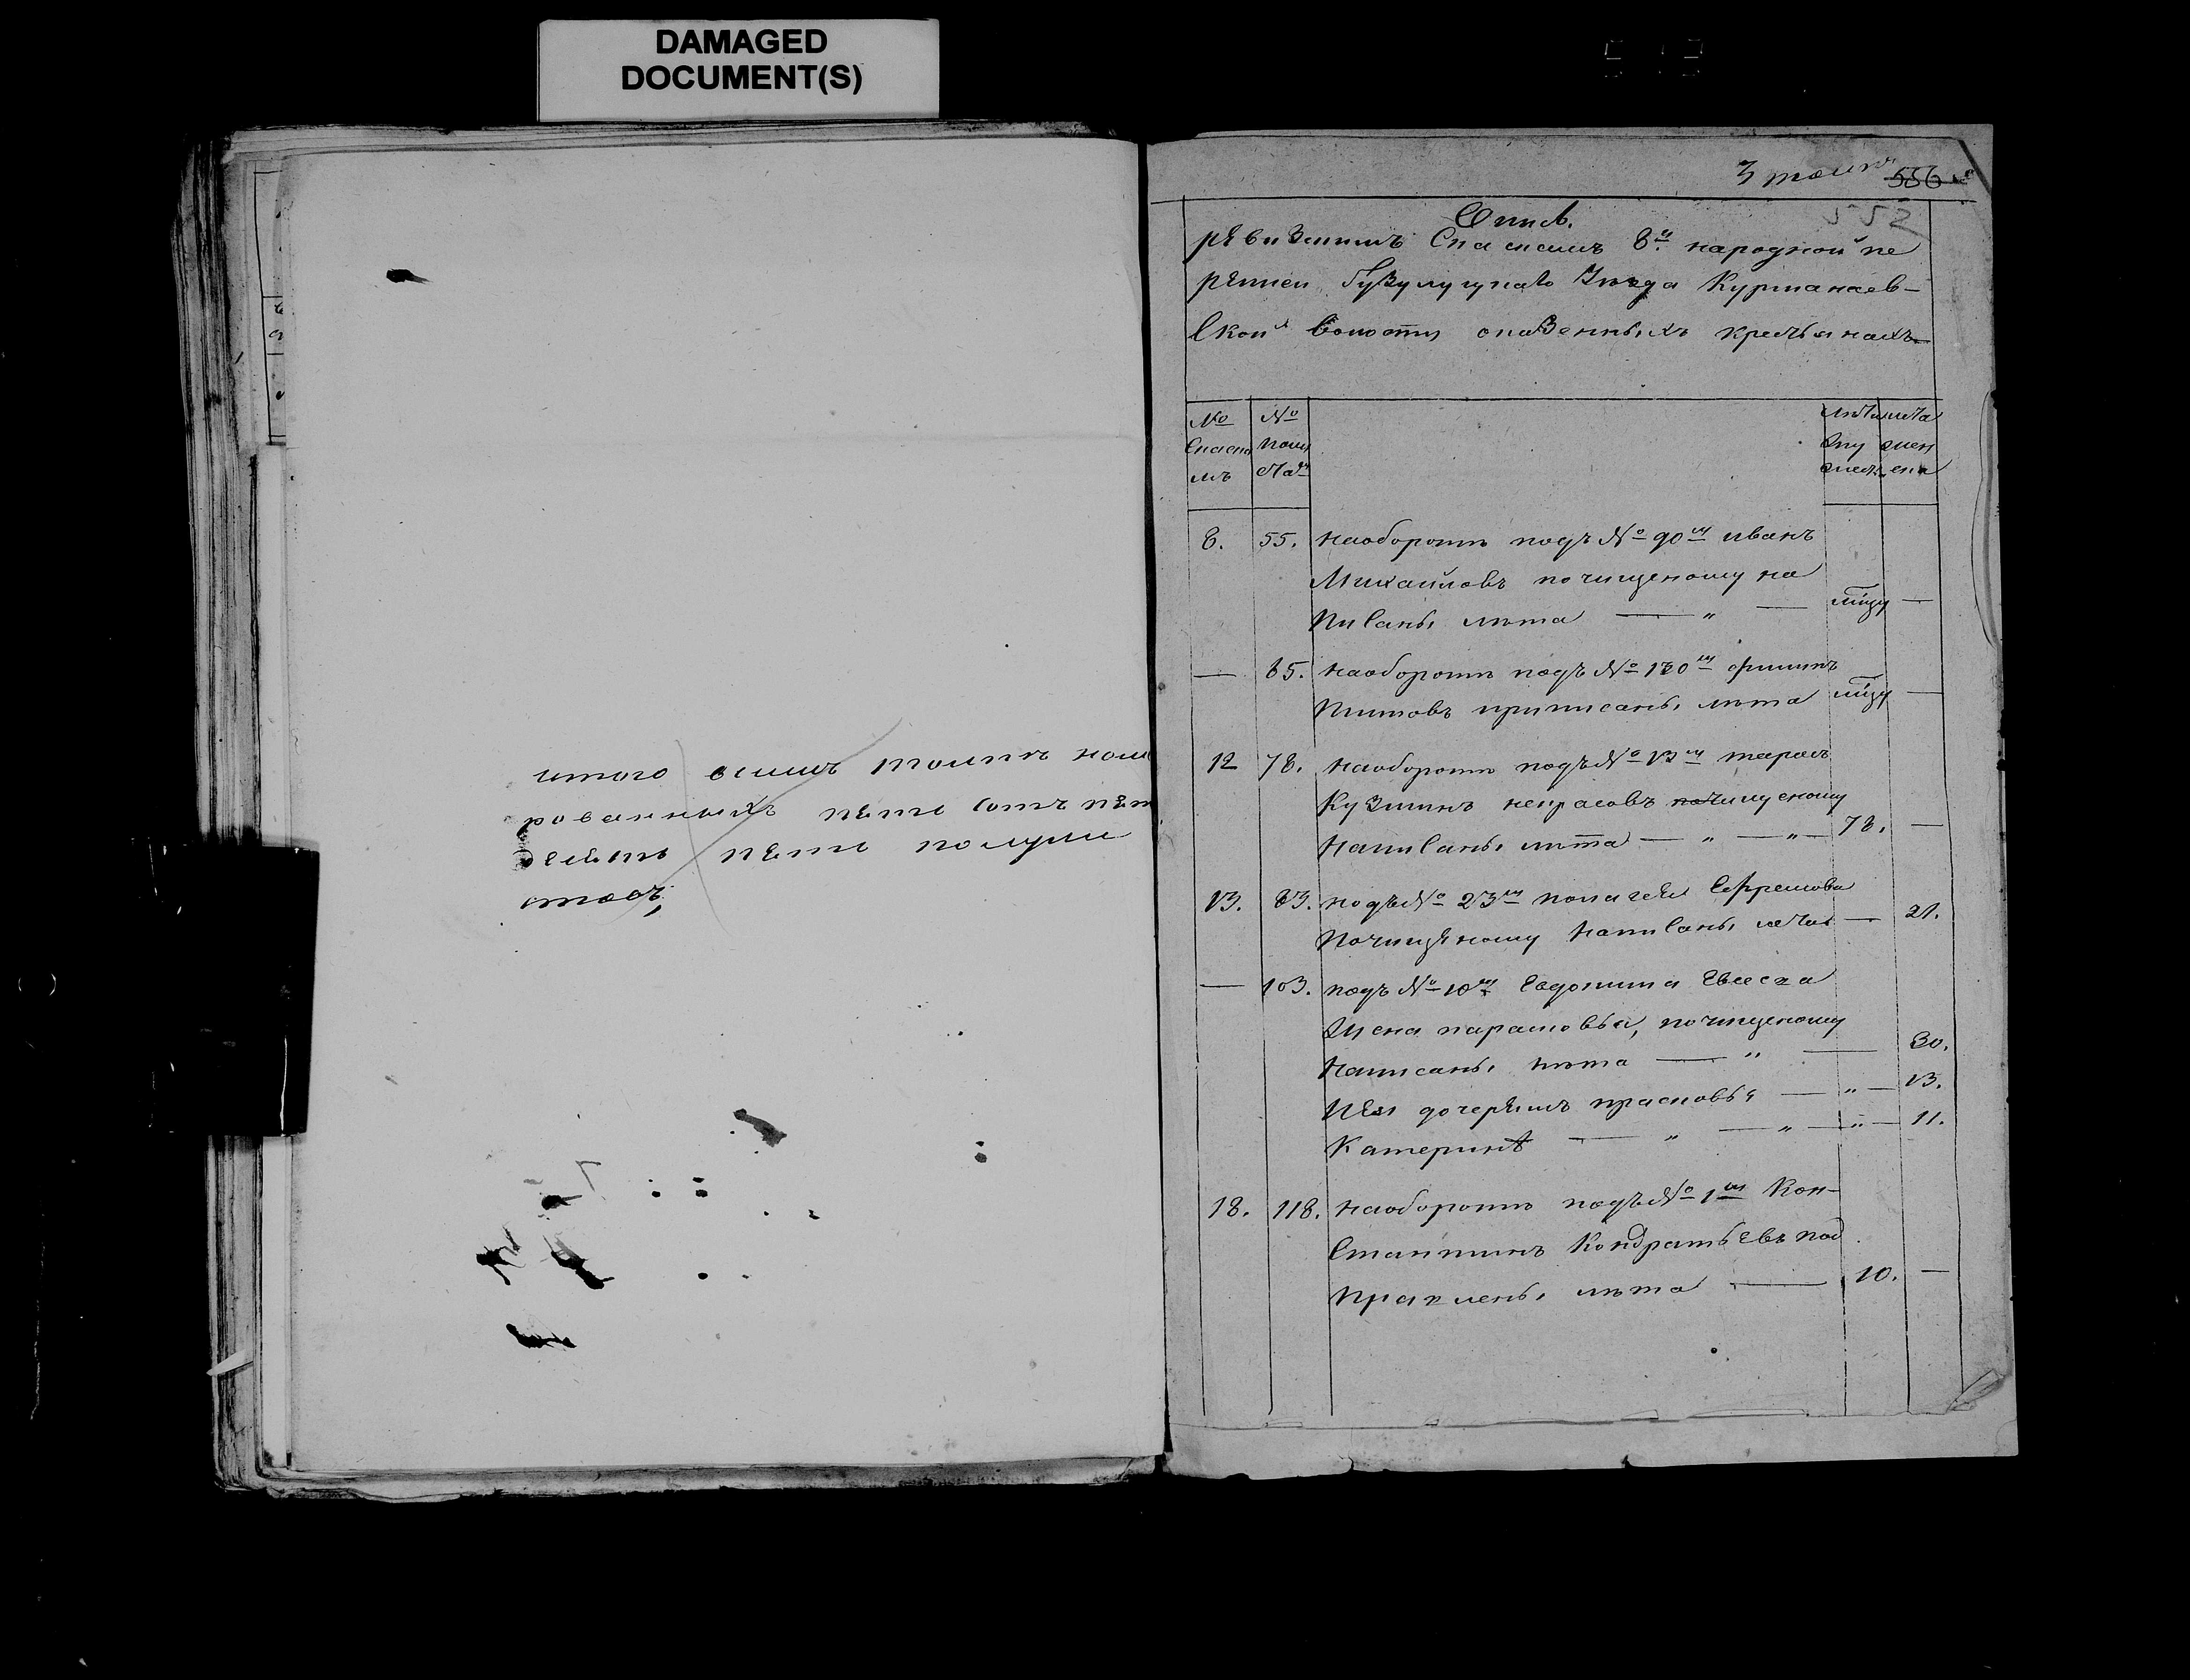 DAMAGED
DOCUMENT(S)
итого в семъ
рованныхъ пять сотъ
десять пять полули
стовъ,
3 томъ 556
552
Опись.
ревизкимъ 8й народной пе
реписи Бузулуцкаго Уезда Курманаев-
ской волости казенныхъ крестьянахъ
№ № лѣта лета
мужеск. женска
8. 55. наоборотѣ подъ № 90м иванъ
Михаиловъ почищеному на
писаны лѣта — " —
— 65. наоборотѣ подъ № филипъ
Титовъ приписаны лѣта —
12 78. наоборотѣ подъ № 13м тарасъ
Кузминъ некрасовъ почищеному
написаны лѣта — " — " — 78. —
13. 83. подъ № 23м пелагея Ефремова
почищеному написаны лета — 21.
— 103. подъ № 10м Евдокима Евсеева
жена парасковья, почищеному
написаны лѣта — " — 30.
ея дочерямъ прасковья — " — 13.
Катеринѣ — " — " — " — 11.
18. 118. наоборотѣ подъ № 1м Кон-
стантинъ Кондратьевъ под
правлены лѣта — 10. —